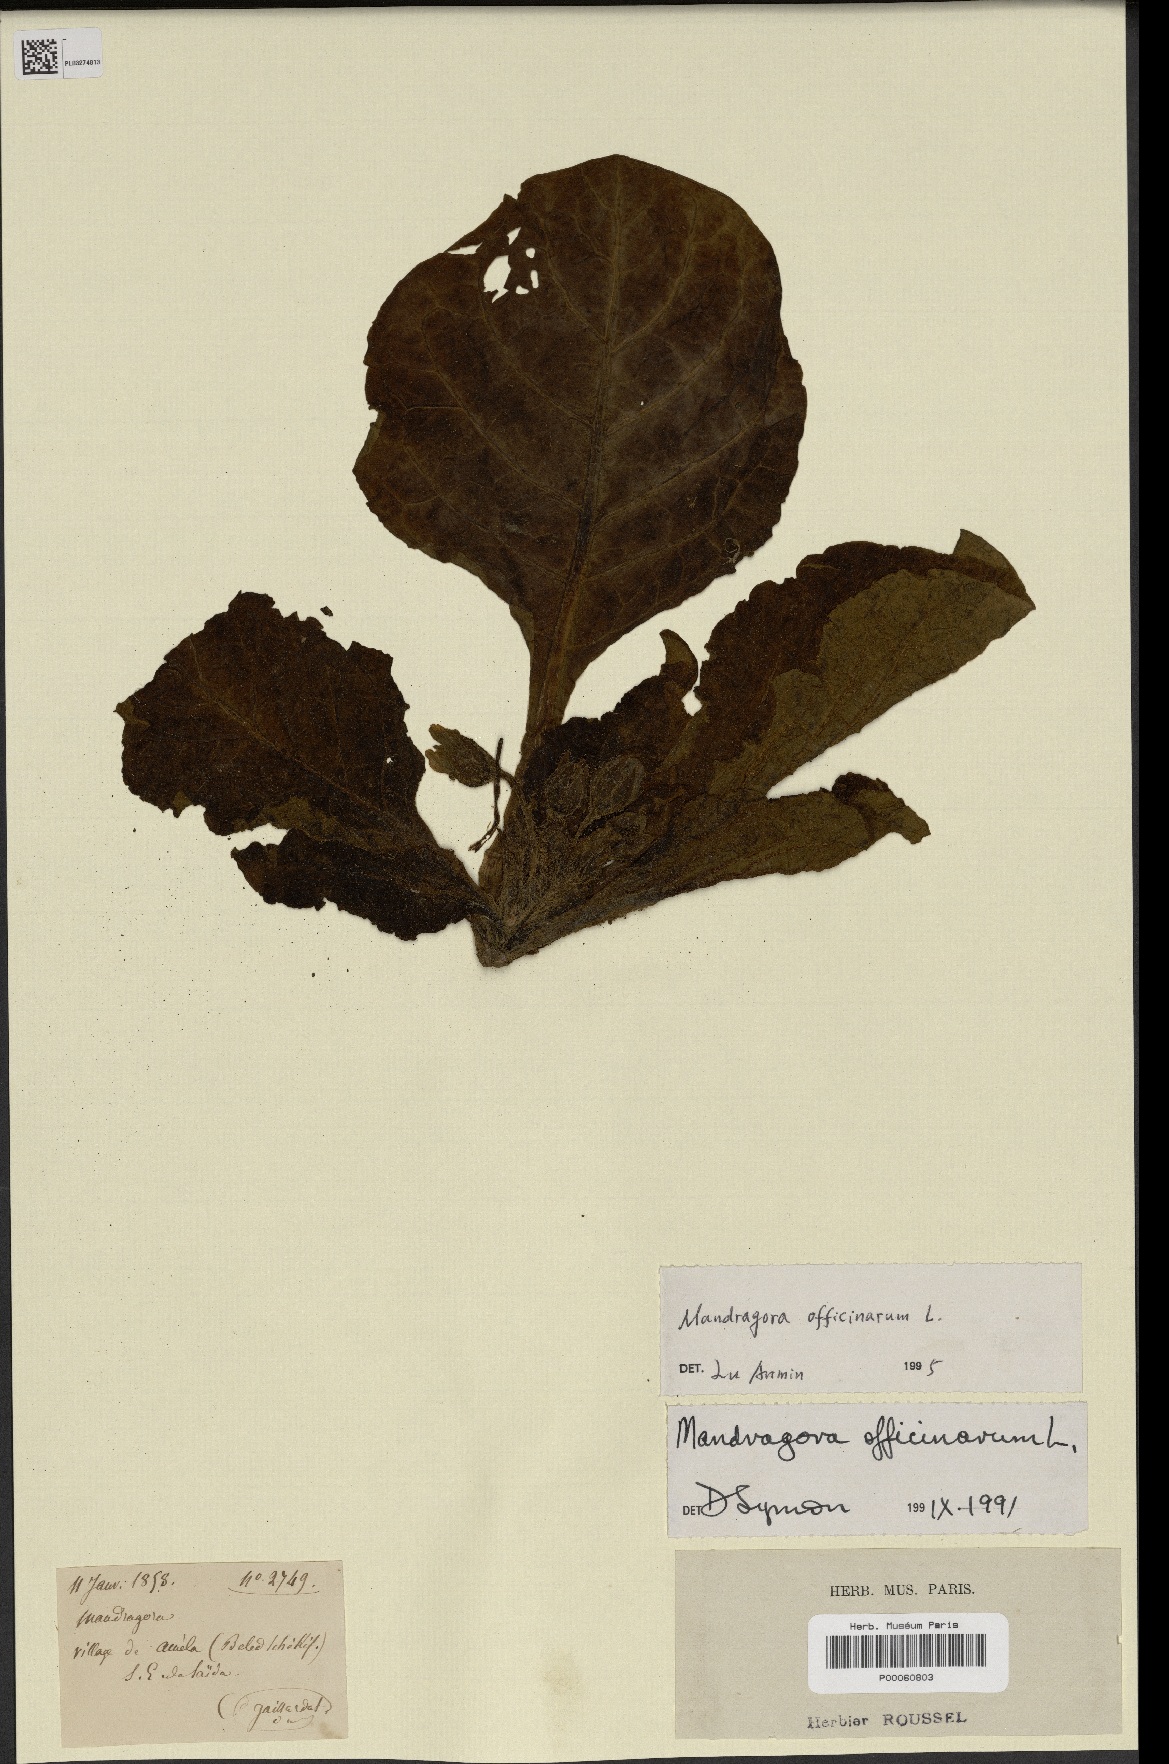 PLU3274813
Mandragora officinarum L.
DET. Lu Anmin 1995
Mandragora officinarum L.
DET D Symon 199 IX-1991
11 Janv: 1858. No. 2749.
Mandragora
village de (Beled
S. E de Saïda.
(gaillardot)
HERB. MUS. PARIS.
Herb. Muséum Paris
P00060803
Herbier ROUSSEL